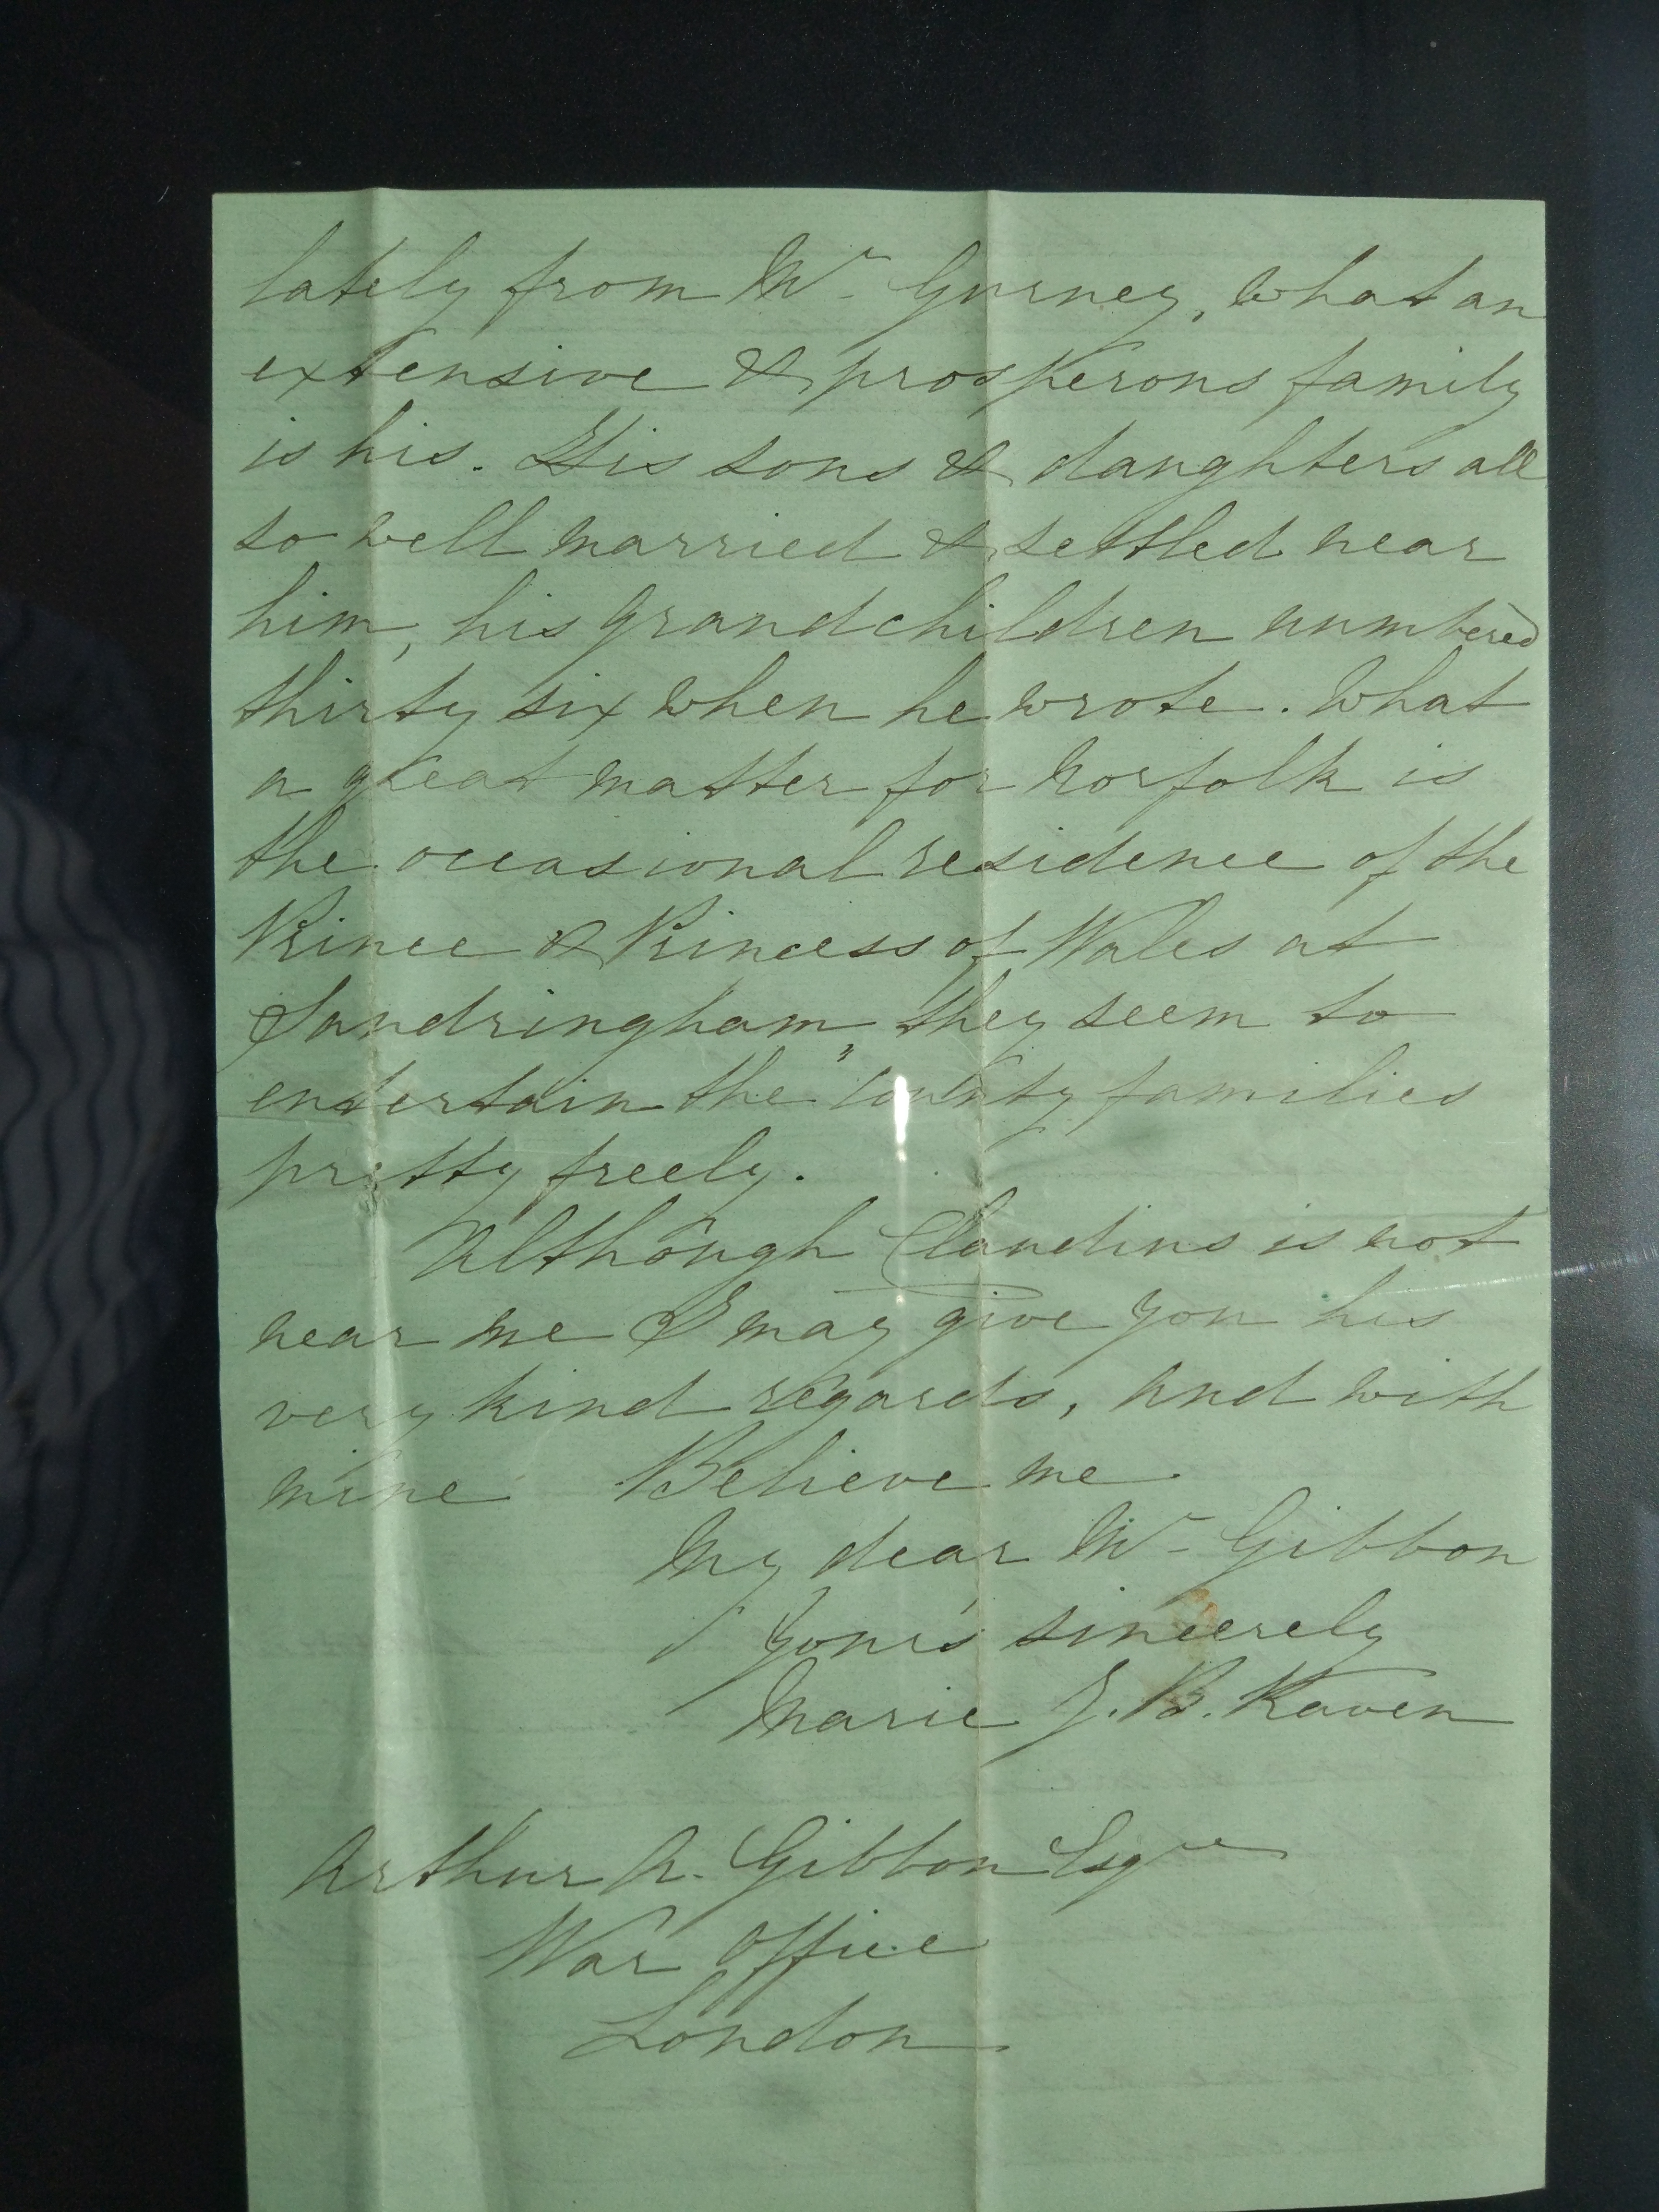 lately from Mr Gurney, what an
extensive & prosperous family
is his. His sons & daughters all
so well married & settled near
him, his grandchildren numbered
thirty six when he wrote. What
a great matter for Norfolk is
the occasional residence of the
Prince & Princess of Wales at
Sandringham, they seem to
entertain the "County families
pretty freely.
Although Claudius is not
near me I may give you his
very kind regards, and with
mine Believe me
My dear Mr Gibbon
Yours sincerely
Marie J. B. Raven
Arthur A. Gibbon Esqre
War Office
London